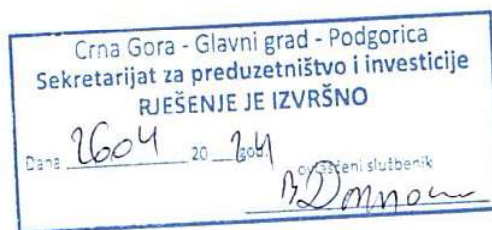 Crna Gora - Glavni grad - Podgorica
Sekretarijat za preduzetništvo i investicije
RJEŠENJE JE IZVRŠNO
Dana 2604 20 24 god.
ovlašćeni službenik